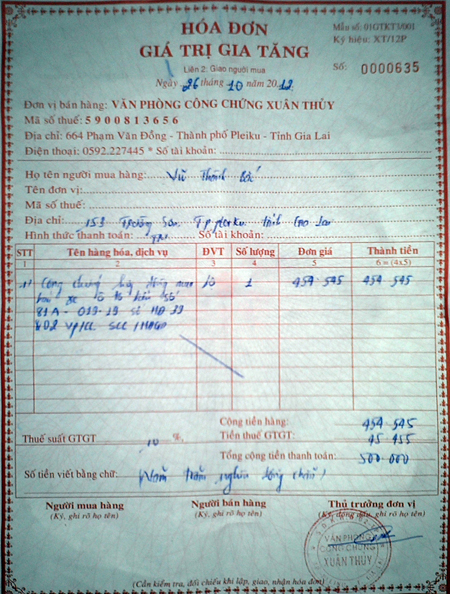 HÓA ĐƠN
GIÁ TRỊ GIA TĂNG
Mẫu số: 01GTKT3/001
Ký hiệu: XT/12P
Liên 2: Giao người mua
Số: 0000635
Ngày 26 tháng 10 năm 2012
Đơn vị bán hàng: VĂN PHÒNG CÔNG CHỨNG XUÂN THỦY
Mã số thuế: 5900813656
Địa chỉ: 664 Phạm Văn Đồng - Thành phố Pleiku - Tỉnh Gia Lai
Điện thoại: 0592.227445 * Số tài khoản:
Họ tên người mua hàng: Vũ Thanh Bắc
Tên đơn vị:
Mã số thuế:
Địa chỉ: 153 Trường Sơn TP pleiku tỉnh Gia Lai
Hình thức thanh toán: TM Số tài khoản:
STT Tên hàng hóa, dịch vụ ĐVT Số lượng Đơn giá Thành tiền
1 2 3 4 5 6 = (4x5)
1/ Công chứng hợp đồng mua 1 454 545 454 545
xe ô tô biển số
81A - 019-19 số HĐ
Cộng tiền hàng: 454 545
Thuế suất GTGT 10 %, Tiền thuế GTGT: 45 455
Tổng cộng tiền thanh toán: 500 000
Số tiền viết bằng chữ: Năm trăm nghìn đồng chẵn
Người mua hàng Người bán hàng Thủ trưởng đơn vị
(Ký, ghi rõ họ tên) (Ký, ghi rõ họ tên) (Ký, đóng dấu, ghi rõ họ tên)
VĂN PHÒNG
CÔNG CHỨNG
XUÂN THỦY
(Cần kiểm tra, đối chiếu khi lập, giao, nhận hóa đơn)